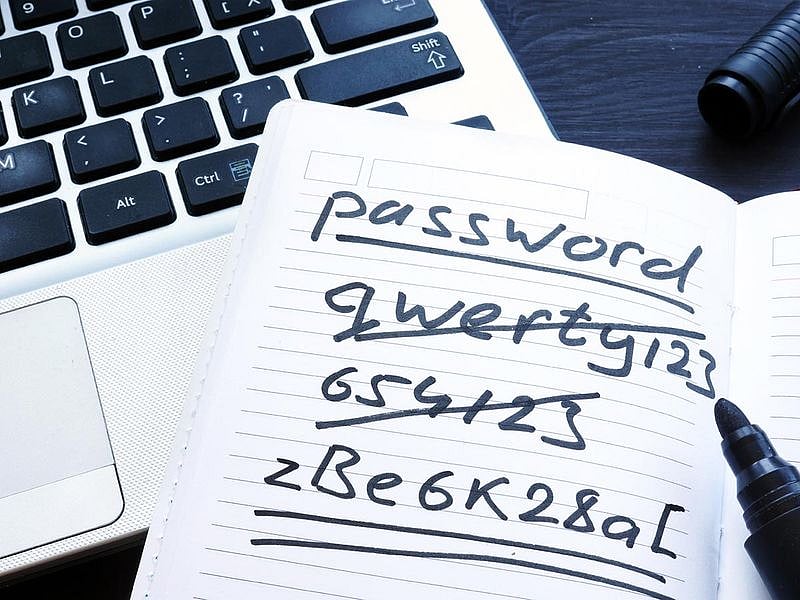 9
O P
K L : ; " ' Shift
M < , > . ? /
Alt Ctrl
password
qwerty123
654123
zBe6K28a[